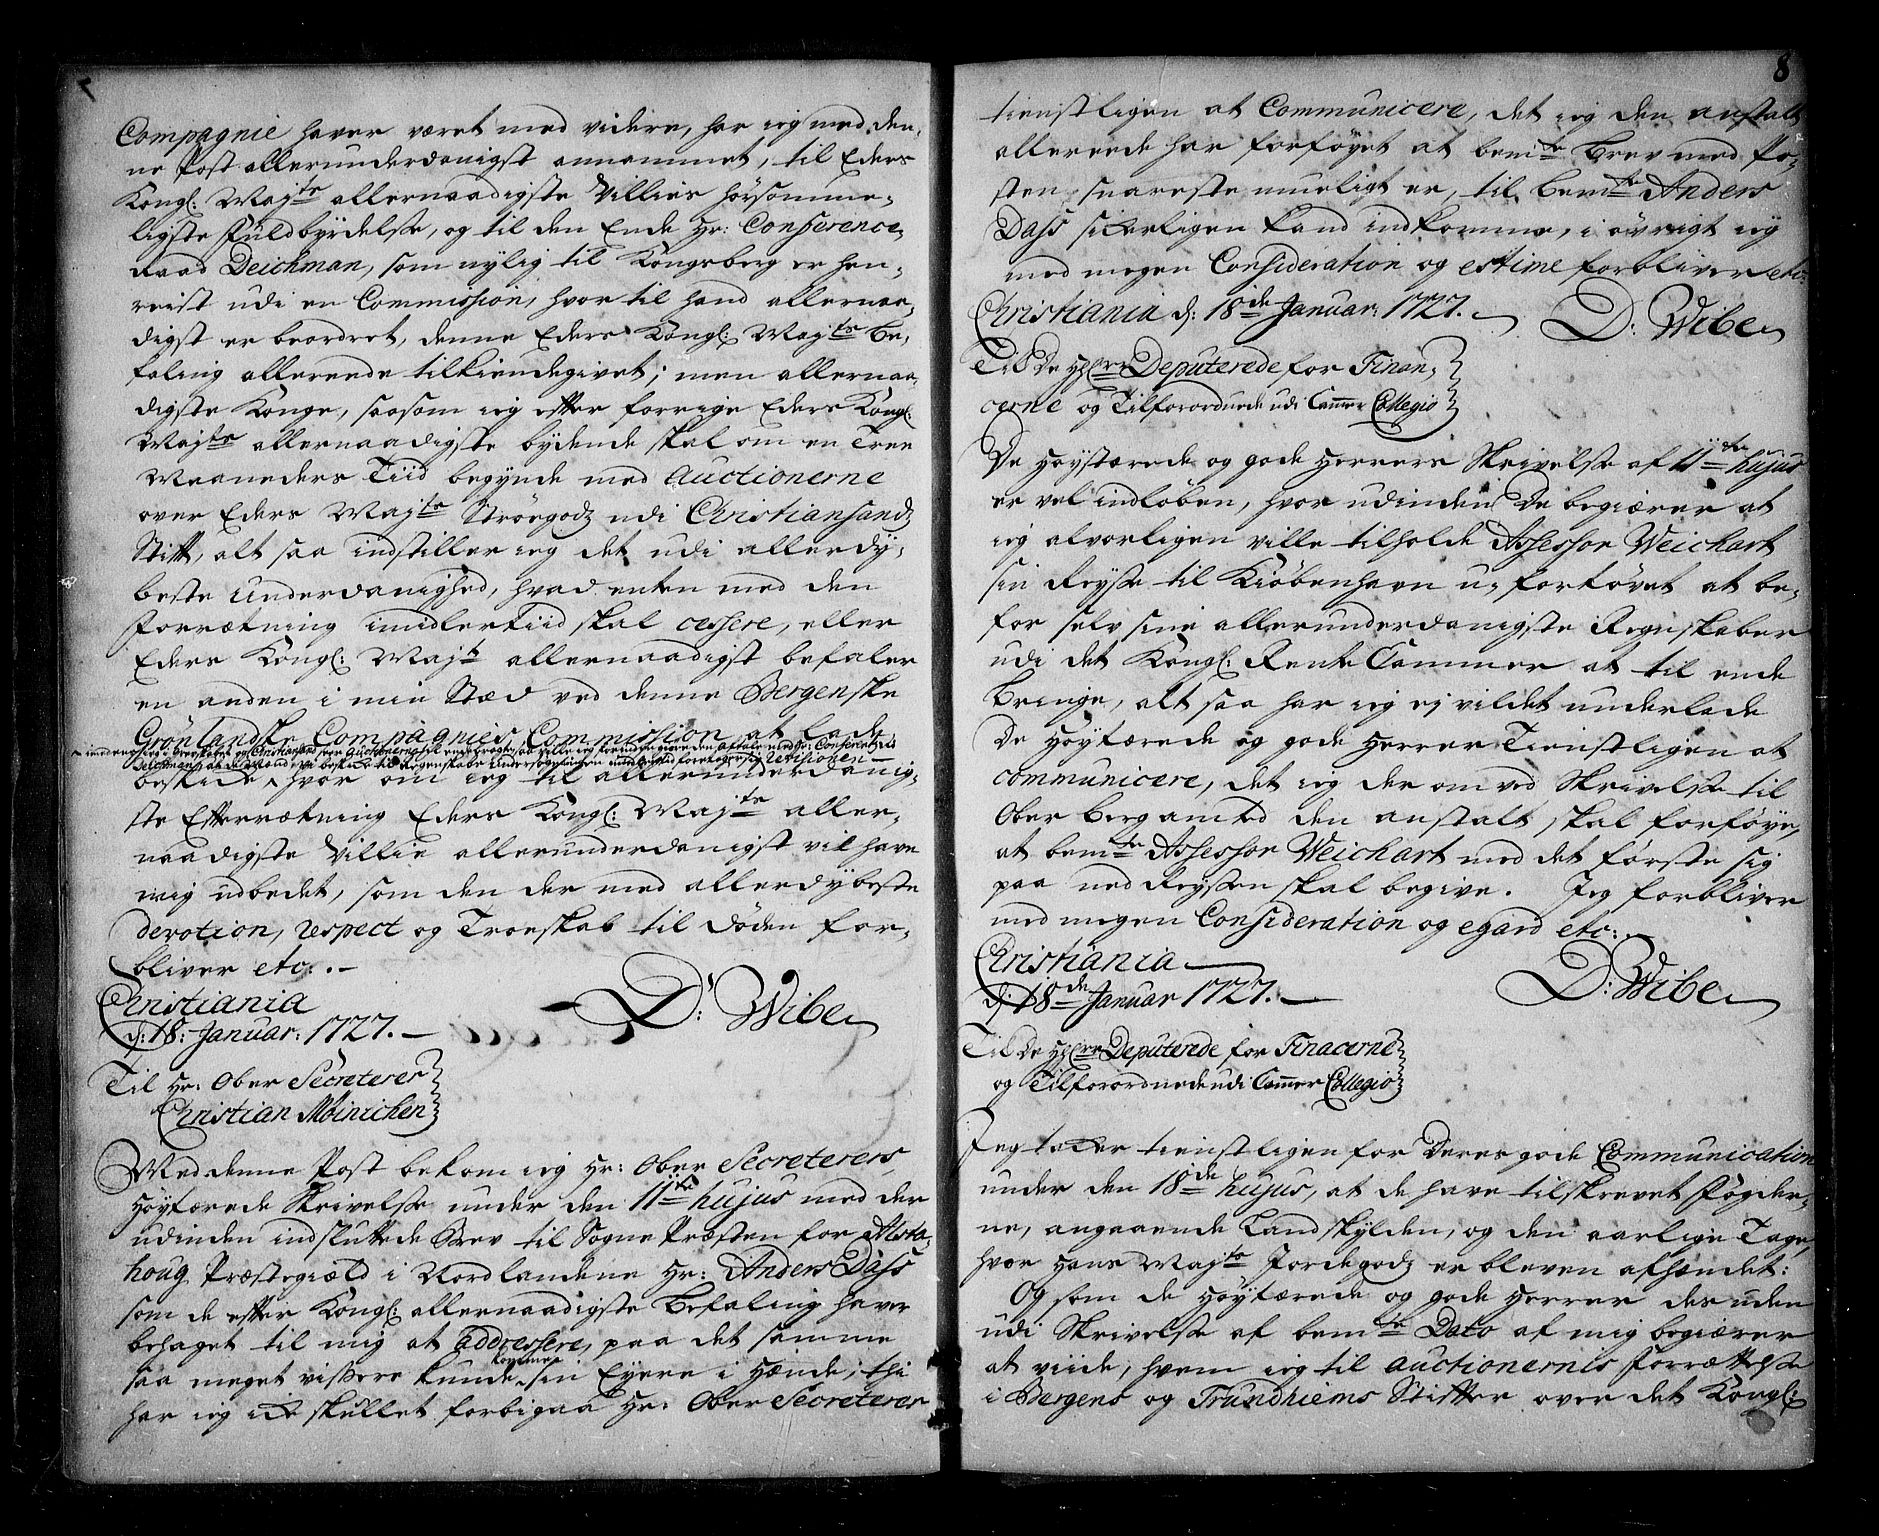 7
Compagnie haver været med videre, har jeg med den¬
ne Post allerunderdanigst annammet, til Eders
Kongl: Majts allernaadigste Villies høysomme¬
ligste Fuldbyrdelse, og til den Ende Hr: Conference¬
raad Deichman, som nylig til Kongsberg er hen¬
reist udi en Commission, hvor til hand allernaa¬
digst er beordret, denne Eders Kongl: Majts be¬
faling allereede tilkiendegivet; men allernaa¬
digste Konge, saasom jeg efter forrige Eders Kongl:
Majts allernaadigste bydende skal om en Tree
Maaneders Tiid begynde med Auctionerne
over Eders Majts Strøegodz udi Christiansandz
Stift, alt saa indstiller jeg det udi allerdy¬
beste Underdanighed, hvad enten med den
Forretning imidlertiid skal cessere, eller
Eders Kongl: Majt allernaadigst befaler
en anden i min Stæd ved denne Bergenske
Grönlandske Compagnies Commission at lade
Revisionen
beskikke hvor om jeg til allerunderdanig¬
ste Efterretning Eders Kongl: Majts aller¬
naadigste Villie allerunderdanigst vil have
mig udbedet, som den der med allerdybeste
devotion, respect og Troeskab til Døden for¬
bliver etc: .-
Christiania
d: 18: Januar: 1727. D: Wibe
Til Hr: Ober Secreterer
Christian Möinichen
Med denne Post bekom jeg Hr: Ober Secreterers
Høytærede Skrivelse under den 11te hujus med der
udinden indsluttede Brev til Sogne Præsten for Alsta¬
houg Præstegiæld i Nordlandene Hr: Anders Dass
som de efter Kongl: allernaadigste Befaling haver
behaget til mig at addressere, paa det samme
saa meget vissere kunde komme sin Eyere i Hænde; thi
har jeg icke skullet forbigaa Hr: Ober Secreterer
8
tienstligen at Communicere, det jeg den anstalt
allereede har forföyet at bemte Brev med Po¬
sten snareste mueligt er, til bemte Anders
Dass sikerligen kand indkomme, i øvrigt jeg
med megen Consideration og estime forbliver etc:
Christiania d: 18de Januar: 1727. D: Wibe
Til De Hrr Deputerede for Finan¬
cerne og Tilforordnede udi Cammer Collegio
De Høystærede og gode Herrers Skrivelse af 11te hujus
er vel indløben, hvor udinden De begiærer at
jeg alvorligen ville tilholde Assessor Weichart
sin Reyse til Kiöbenhavn u-fortøvet at be¬
for selv sine allerunderdanigste Regnskaber
udi det Kongl: Rente Cammer at til ende
bringe, alt saa har jeg ej vildet underlade
De Høytærede og gode Herrer Tienstligen at
communicere, det jeg der om ved Skrivelse til
Ober Berg amted den anstalt skal forföye,
at bemte Assessor Weichart med det første sig
paa ned Reysen skal begive. Jeg forbliver
med megen Consideration og egard etc: .-
Christiania
d: 18de Januar 1727. D: Wibe
Til De Hrr Deputerede for Finacerne
og Tilforordnede udi Cammer Collegio
Jeg tacker tienstligen for Deres gode Communication
under den 18de hujus, at de have tilskrevet Fogder¬
ne, angaaende Landskylden, og den aarlige Tage,
hvor Hans Majts Jordegodz er bleven afhændet:
Og som de Høytærede og gode Herrer des uden
udi Skrivelse af bemte Dato af mig begiærer
at viide, hvem jeg til Auctionernis Forrettelse
i Bergens og Trundhiems Stifter over det Kongl: